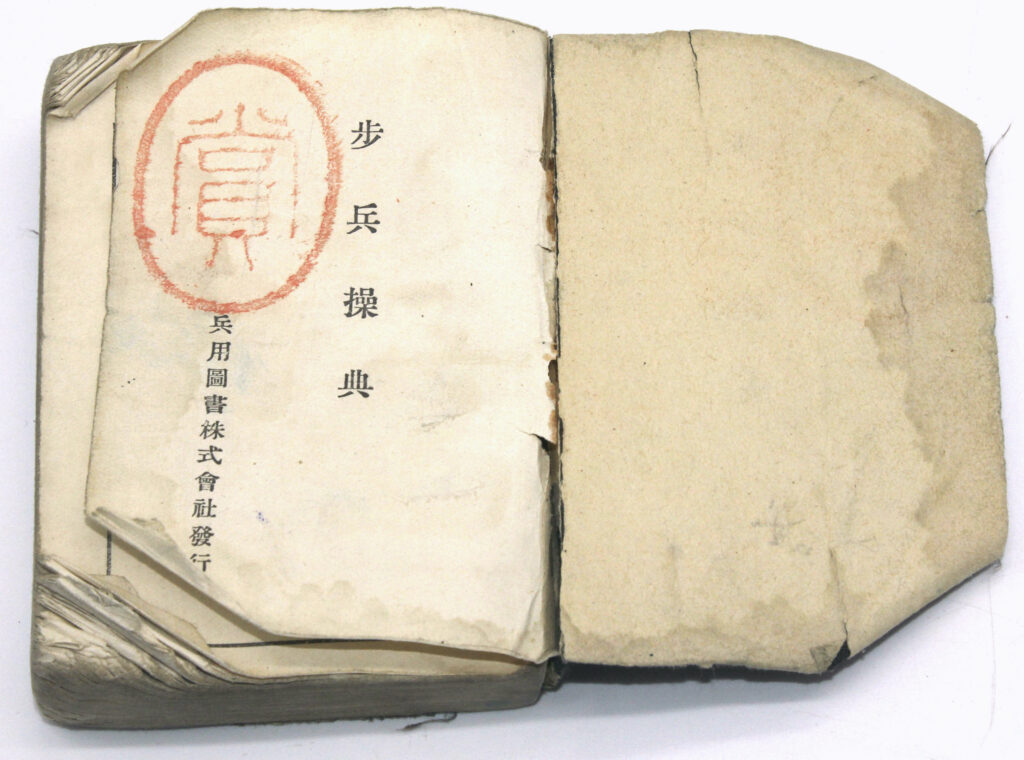 步兵操典
兵用圖書株式會社發行
賞